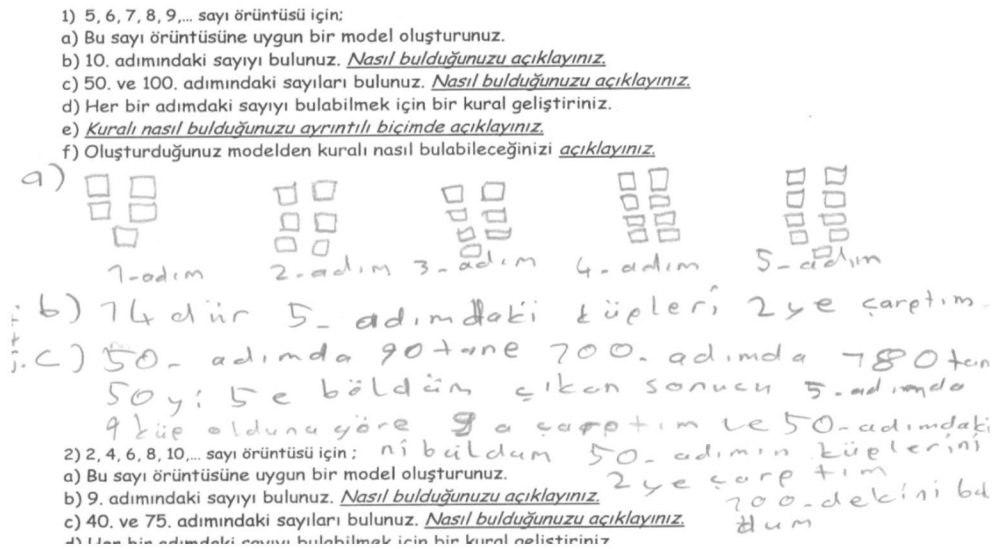 1) 5, 6, 7, 8, 9,... sayı örüntüsü için;
a) Bu sayı örüntüsüne uygun bir model oluşturunuz.
b) 10. adımındaki sayıyı bulunuz. Nasıl bulduğunuzu açıklayınız.
c) 50. ve 100. adımındaki sayıları bulunuz. Nasıl bulduğunuzu açıklayınız.
d) Her bir adımdaki sayıyı bulabilmek için bir kural geliştiriniz.
e) Kuralı nasıl bulduğunuzu ayrıntılı biçimde açıklayınız.
f) Oluşturduğunuz modelden kuralı nasıl bulabileceğinizi açıklayınız.
a)
1-adım 2-adım 3-adım 4-adım 5-adım
b) 14 dür 5-adımdaki küpleri 2ye çarptım
c) 50-adımda 90 tane 100-adımda 180 tan
50 yi 5e böldüm çıkan sonucu 5-adımda
9 küp olduna göre 9 a çarptım ve 50-adımdaki
ni buldum 50-adımın küplerini
2ye çarptım
100-dekini bul
dum
2) 2, 4, 6, 8, 10,... sayı örüntüsü için ;
a) Bu sayı örüntüsüne uygun bir model oluşturunuz.
b) 9. adımındaki sayıyı bulunuz. Nasıl bulduğunuzu açıklayınız.
c) 40. ve 75. adımındaki sayıları bulunuz. Nasıl bulduğunuzu açıklayınız.
d) Her bir adımdaki sayıyı bulabilmek için bir kural geliştiriniz.